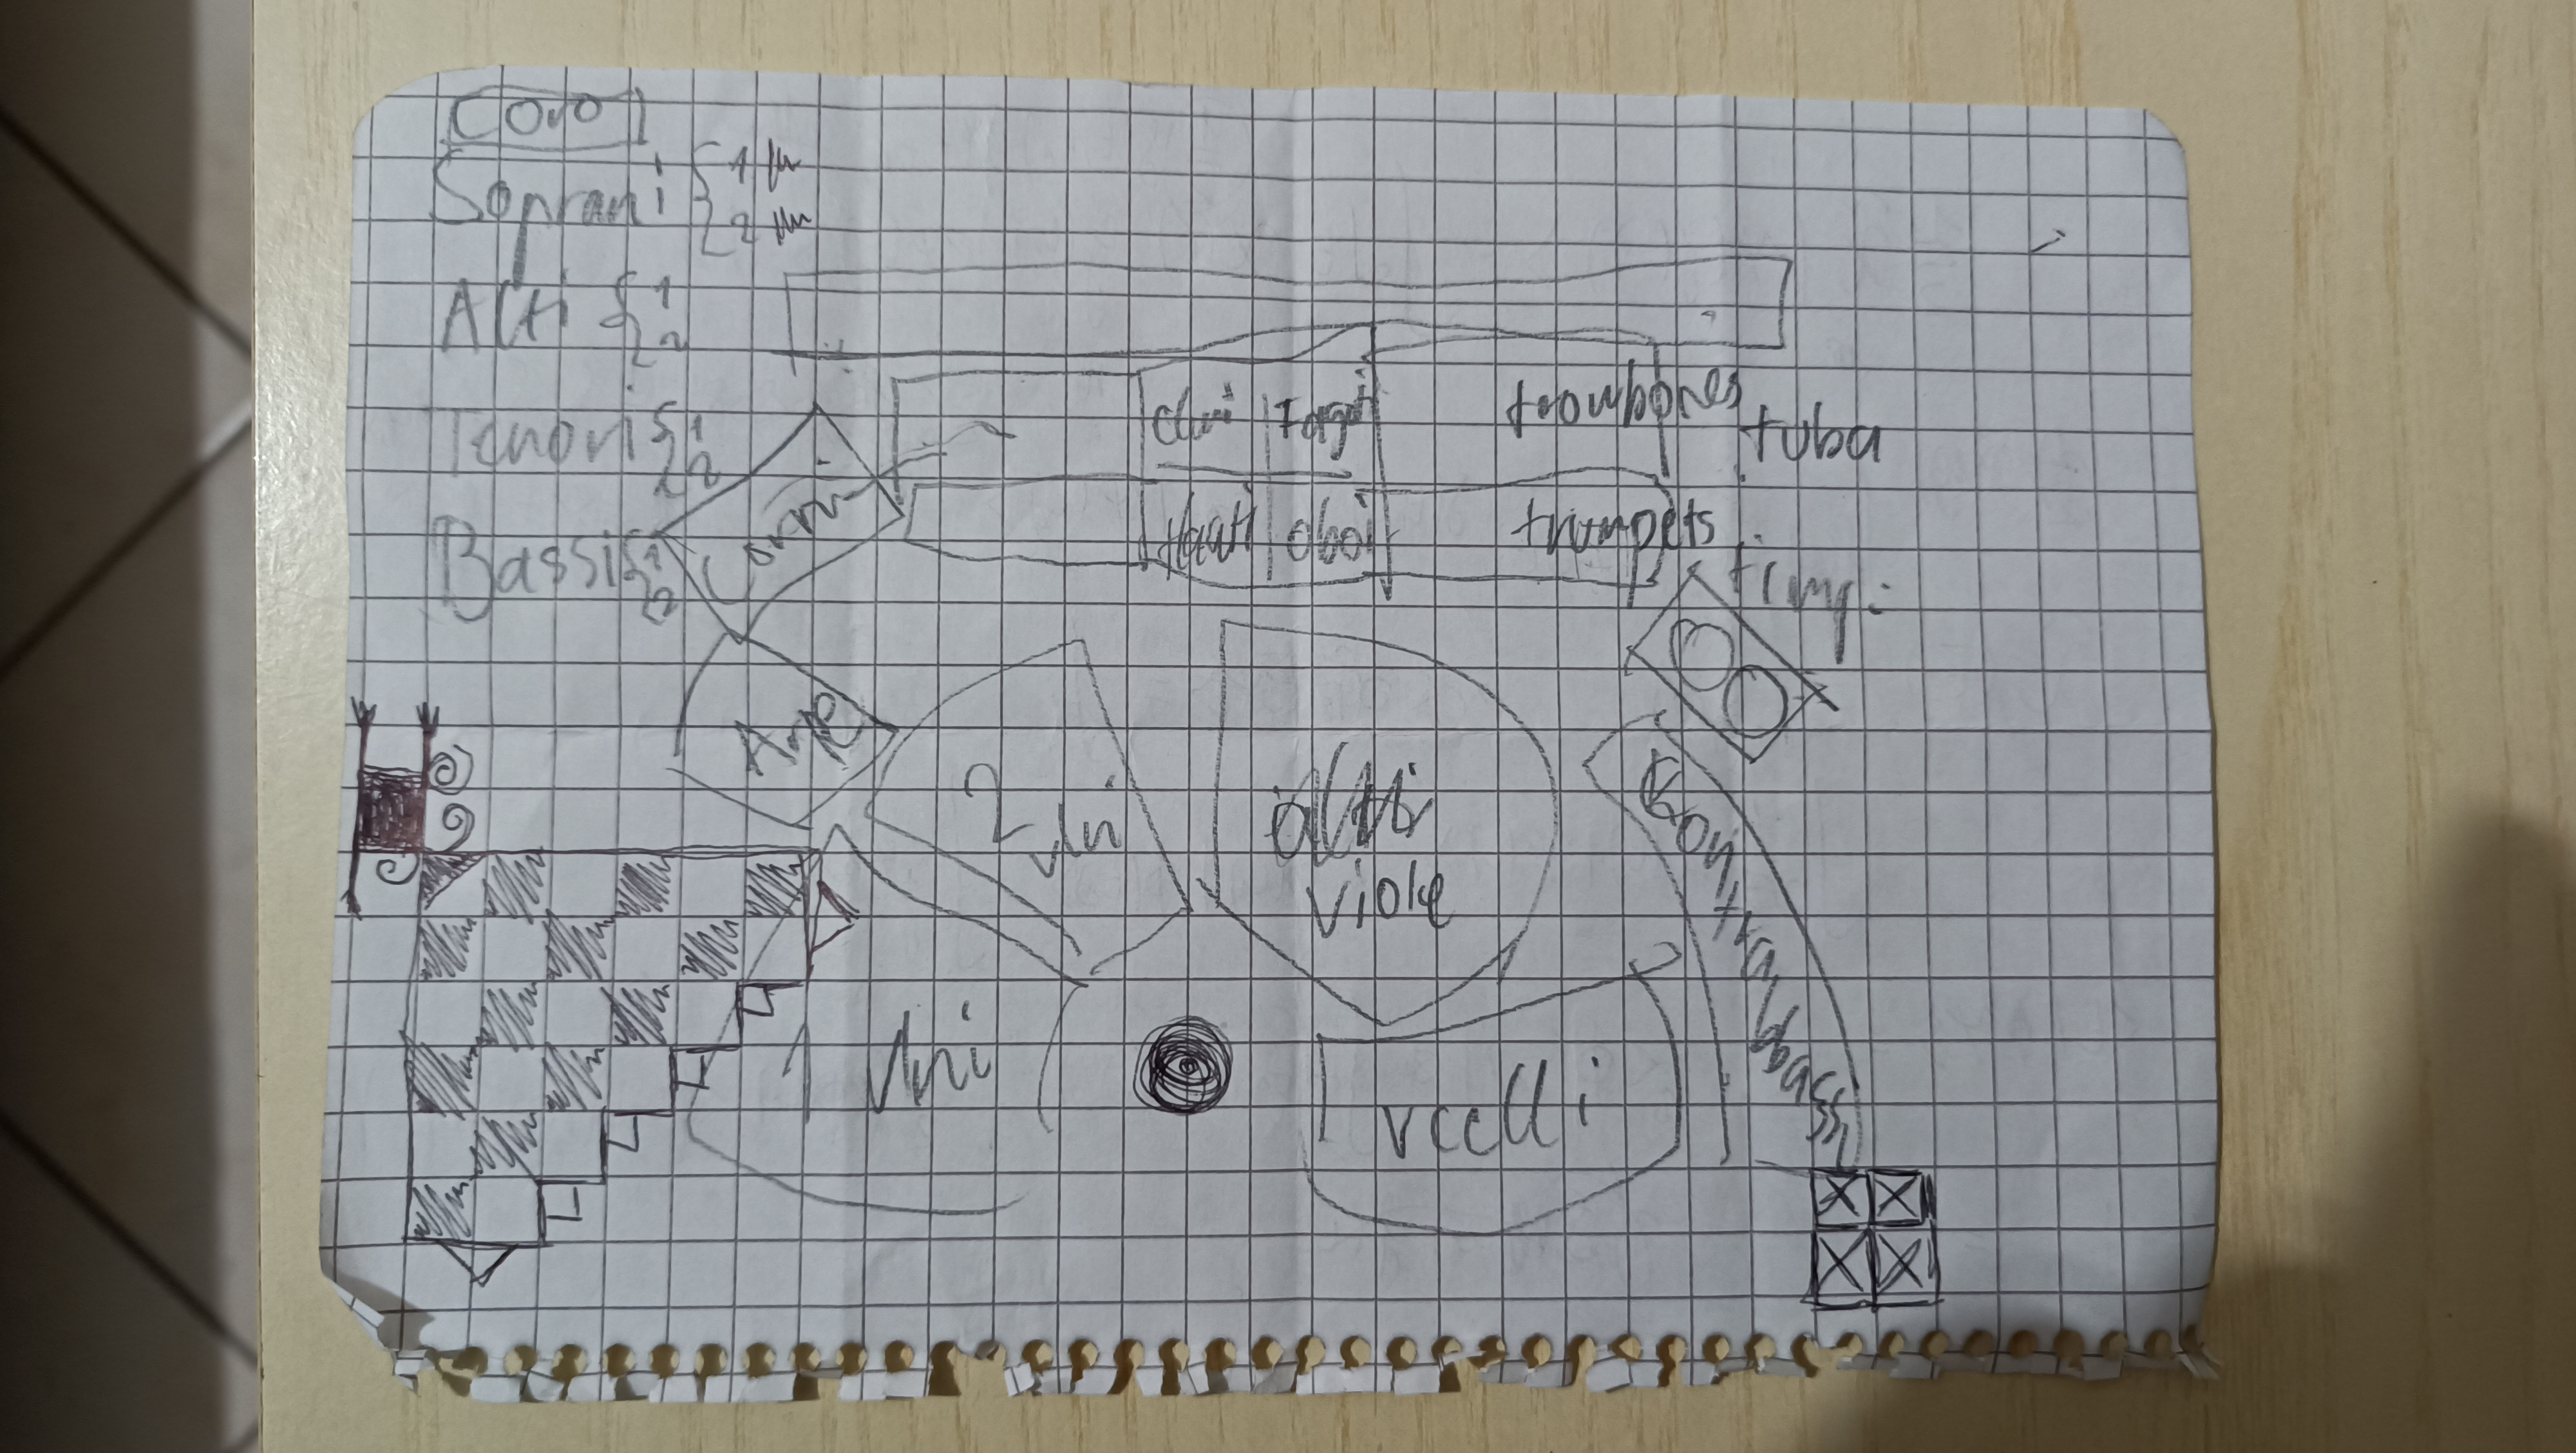 Coro
Soprani { 1
2
Alti { 1
2
Tenori { 1
2
Bassi { 1
2
Corni
Clni Fagoti
trombones
tuba
flauti oboi
trumpets
timp.
Arpe
2 vlni
alti
viole
Kontrabassi
1 vlni
vcelli